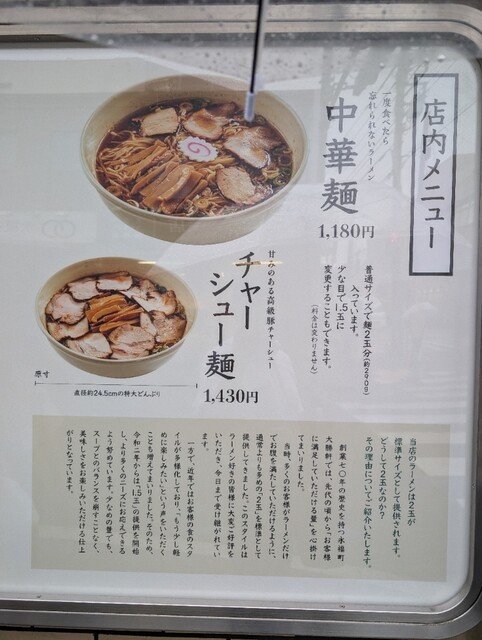 店内メニュー
一度食べたら
忘れられないラーメン
中華麺
1,180円
普通サイズで麺2玉分(約290g)
入っています。
少な目で1.5玉に
変更することもできます。
(料金は変わりません)
甘みのある高級豚チャーシュー
チャー
シュー麺
1,430円
原寸
直径約24.5cmの特大どんぶり
当店のラーメンは2玉が
標準サイズとして提供されます。
どうして2玉なのか?
その理由についてご紹介いたします。
創業七〇年の歴史を持つ永福町
大勝軒では、先代の頃から「お客様
に満足していただける量」を心掛け
てまいりました。
当時、多くのお客様がラーメンだけ
でお腹を満たしていただけるように、
通常よりも多めの"2玉"を標準として
提供してきました。このスタイルは
ラーメン好きの皆様に大変ご好評を
いただき、今日まで受け継がれてい
ます。
一方で、近年ではお客様の食のスタ
イルが多様化しており、「もう少し軽
めに楽しみたい」という声をいただく
ことも増えてまいりました。そのため、
令和二年からは"1.5玉"の提供を開始
し、より多くのニーズにお応えできる
よう努めています。少なめの量でも、
スープとのバランスを崩すことなく、
美味しさをお楽しみいただける仕上
がりとなっています。